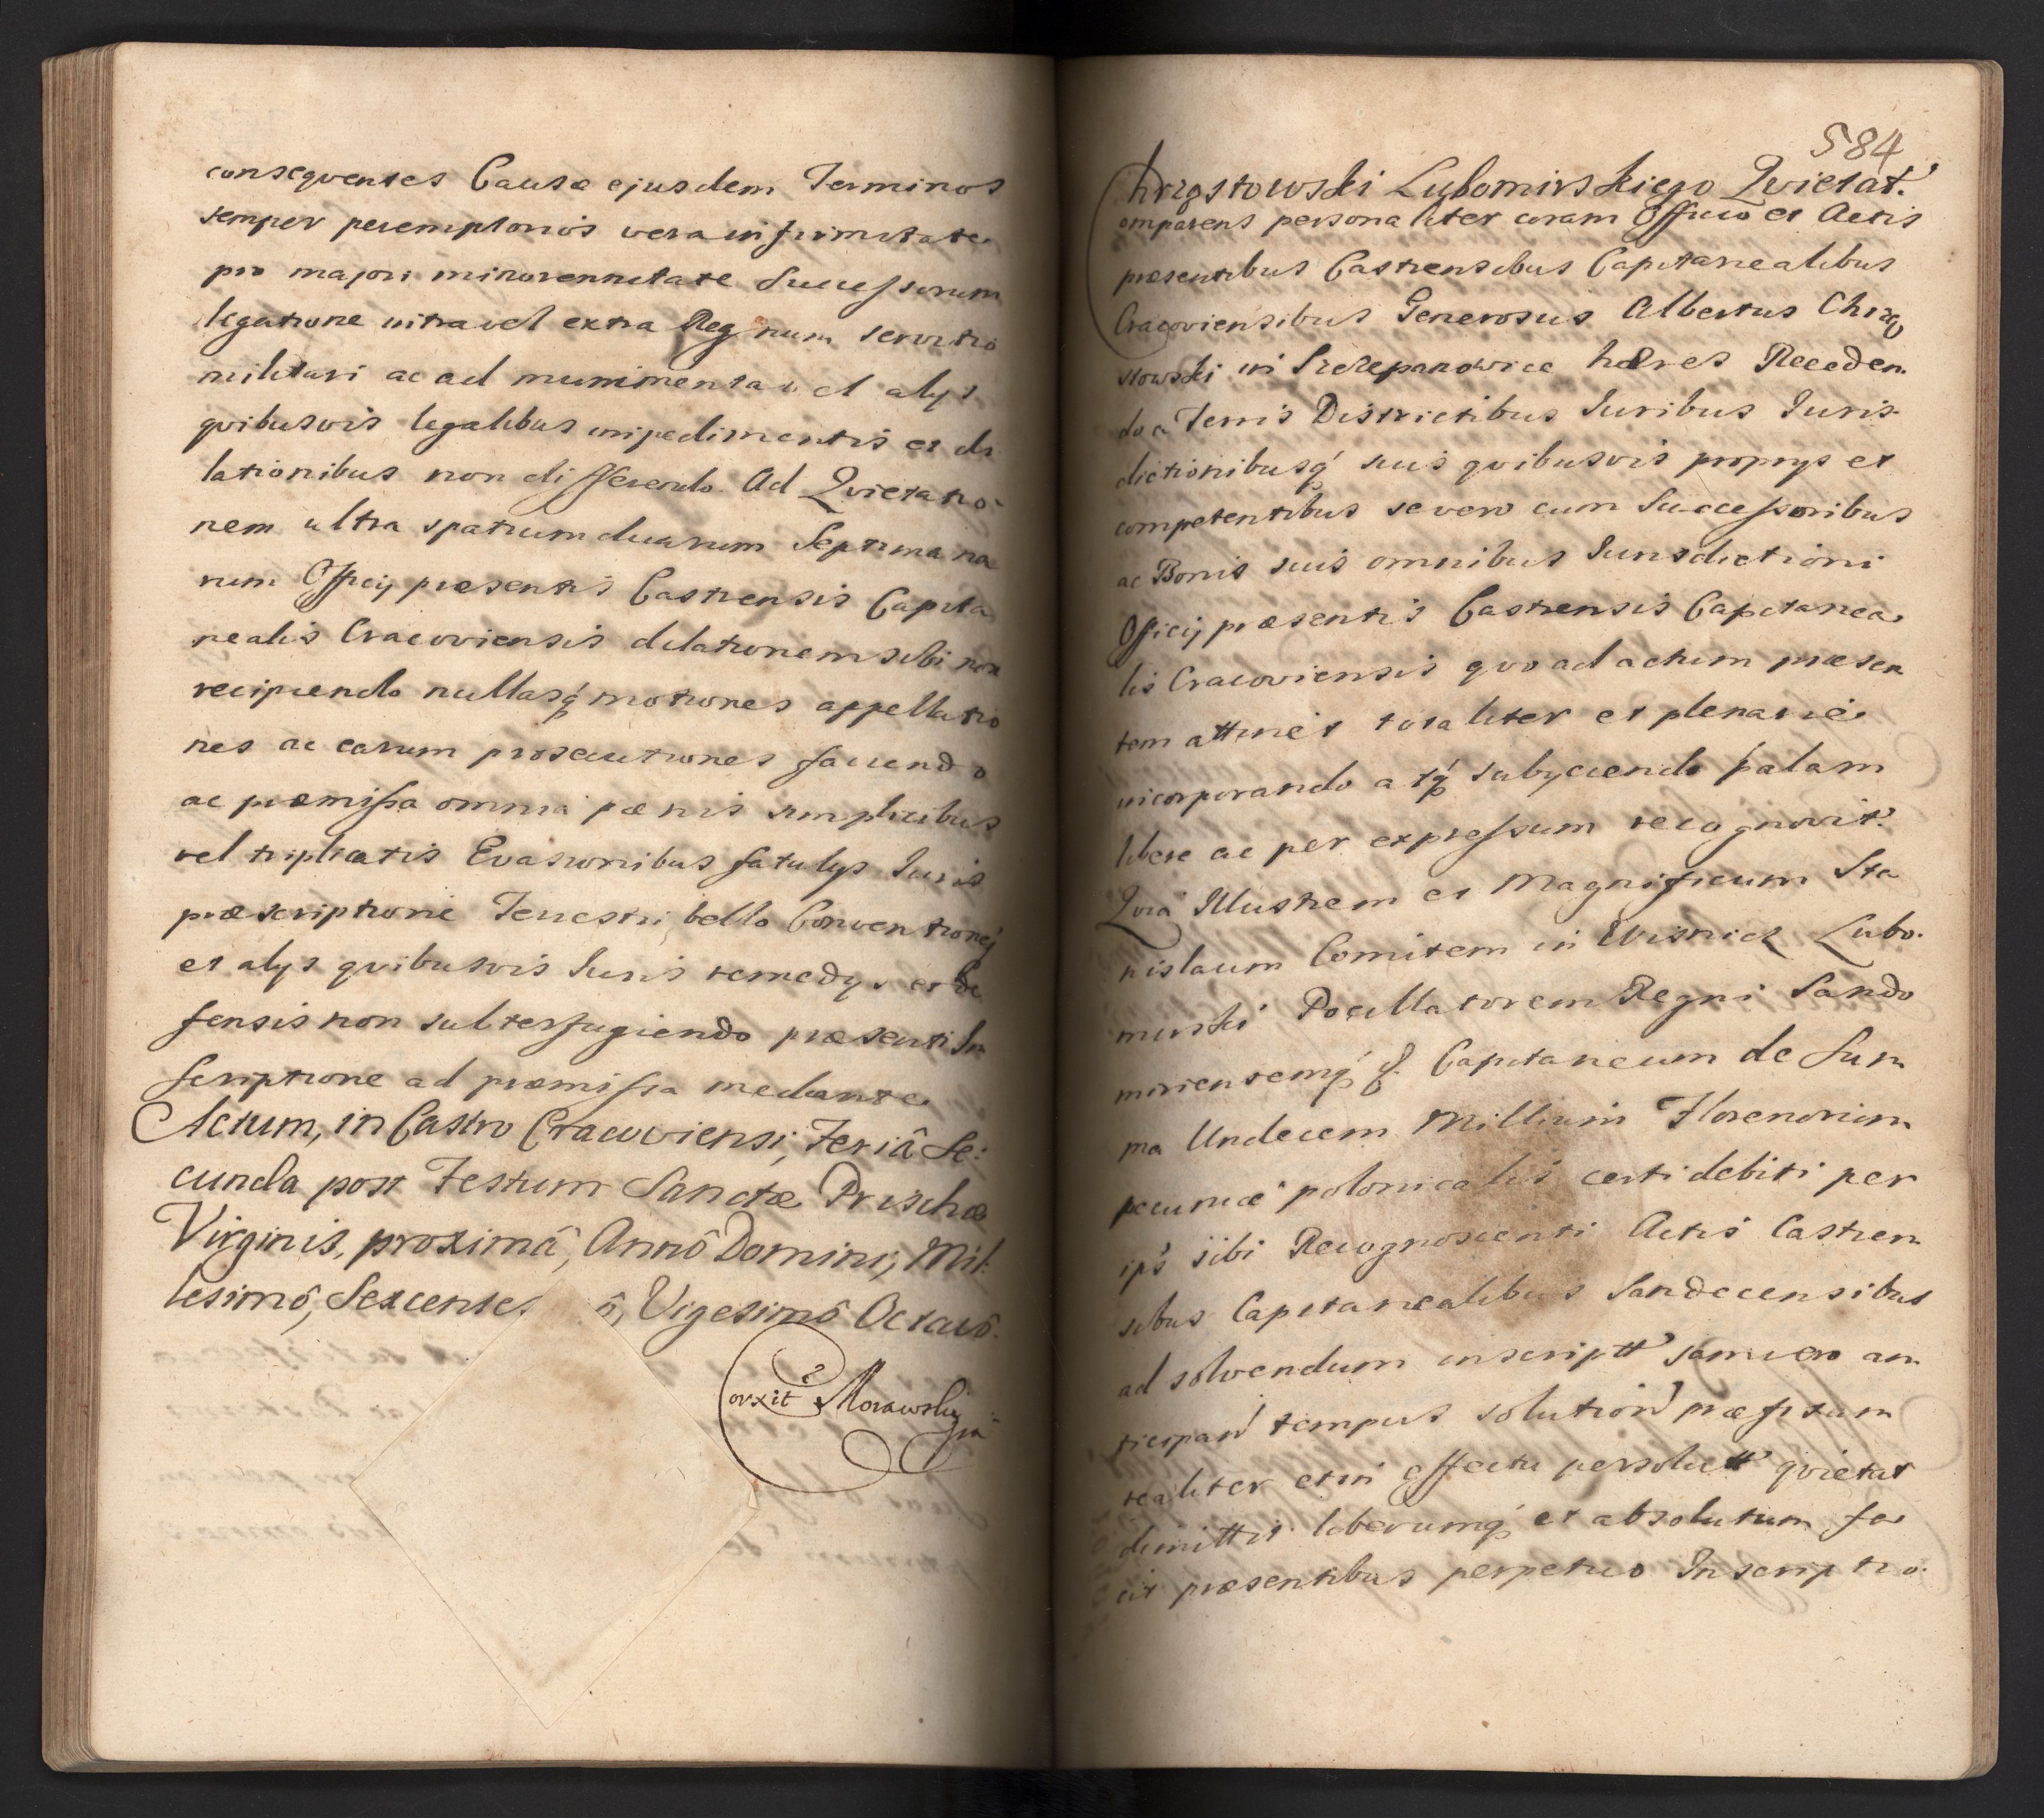 conseqventes Causæ ejusdem Terminos
semper peremptorios vera infirmitate
pro majori minorennitate Successorum
legatione intra vel extra Regnum servitio
militari ac ad munimenta vel alys
qvibusvis legalibus impedimentis et di
lationibus non differendo. Ad Qvietatio
nem ultra spatium duarum Septimana
rum Officy præsentis Castrensis Capita
nealis Cracoviensis dilationem sibi non
recipiendo nullasq́ motiones appellatio
nes ac earum prosecutiones faciendo
ac præmissa omnia pænis simplicibus
vel triplicatis Evasionibus fatalys Juris
præscriptione Terrestri bello
et alys qvibusvis Juris remedys et de
fensis non subterfugiendo præsenti In
scriptione ad præmissa mediante
Actum, in Castro Cracoviensi, Feriâ Se:
cunda post Festum Sanctæ Priscæ
Virginis, proximâ, Annô Domini, Mil:
lesimô, Sexcentes ô, Vigesimô Octavô.
orxit Morawsky
584
Chrząstowski Lubomirskiego Qvietat.
omparens personaliter coram Officio et Actis
præsentibus Castrensibus Capitanealibus
Cracoviensibus Generosus Albertus Chrzą
stowski in Szczepanowice hæres Receden
do a Terris Districtibus Iuribus Iuris
dictionibusq́ suis qvibusvis proprys et
competentibus se vero cum Successoribus
ac Bonis suis omnibus Iurisdictioni
Officy præsentis Castrensis Capitanea
lis Cracoviensis qvo ad actum præsen
tem attinet totaliter et plenarie
incorporando atq́ subyciendo palam
libere ac per expressum recognovit.
Qvia Illustrem et Magnificum Sta
nislaum Comitem in Wisnicz Lubo
mirski Pocillatorem Regni Sando
miriensemq́ &. Capitaneum de Sum
ma Undecem Millium Florenorum
pecuniæ polonicalis certi debiti per
ips̃ sibi Recognoscenti Actis Castren
sibus Capitanealibus Sandecensibus
ad solvendum inscriptt jam vero an
ticipan̄ tempus solution̄ præfixum
realiter et in effectu persolutt qvietat
dimittit liberumq́ et absolutum fa
cit præsentibus perpetuo Inscriptio